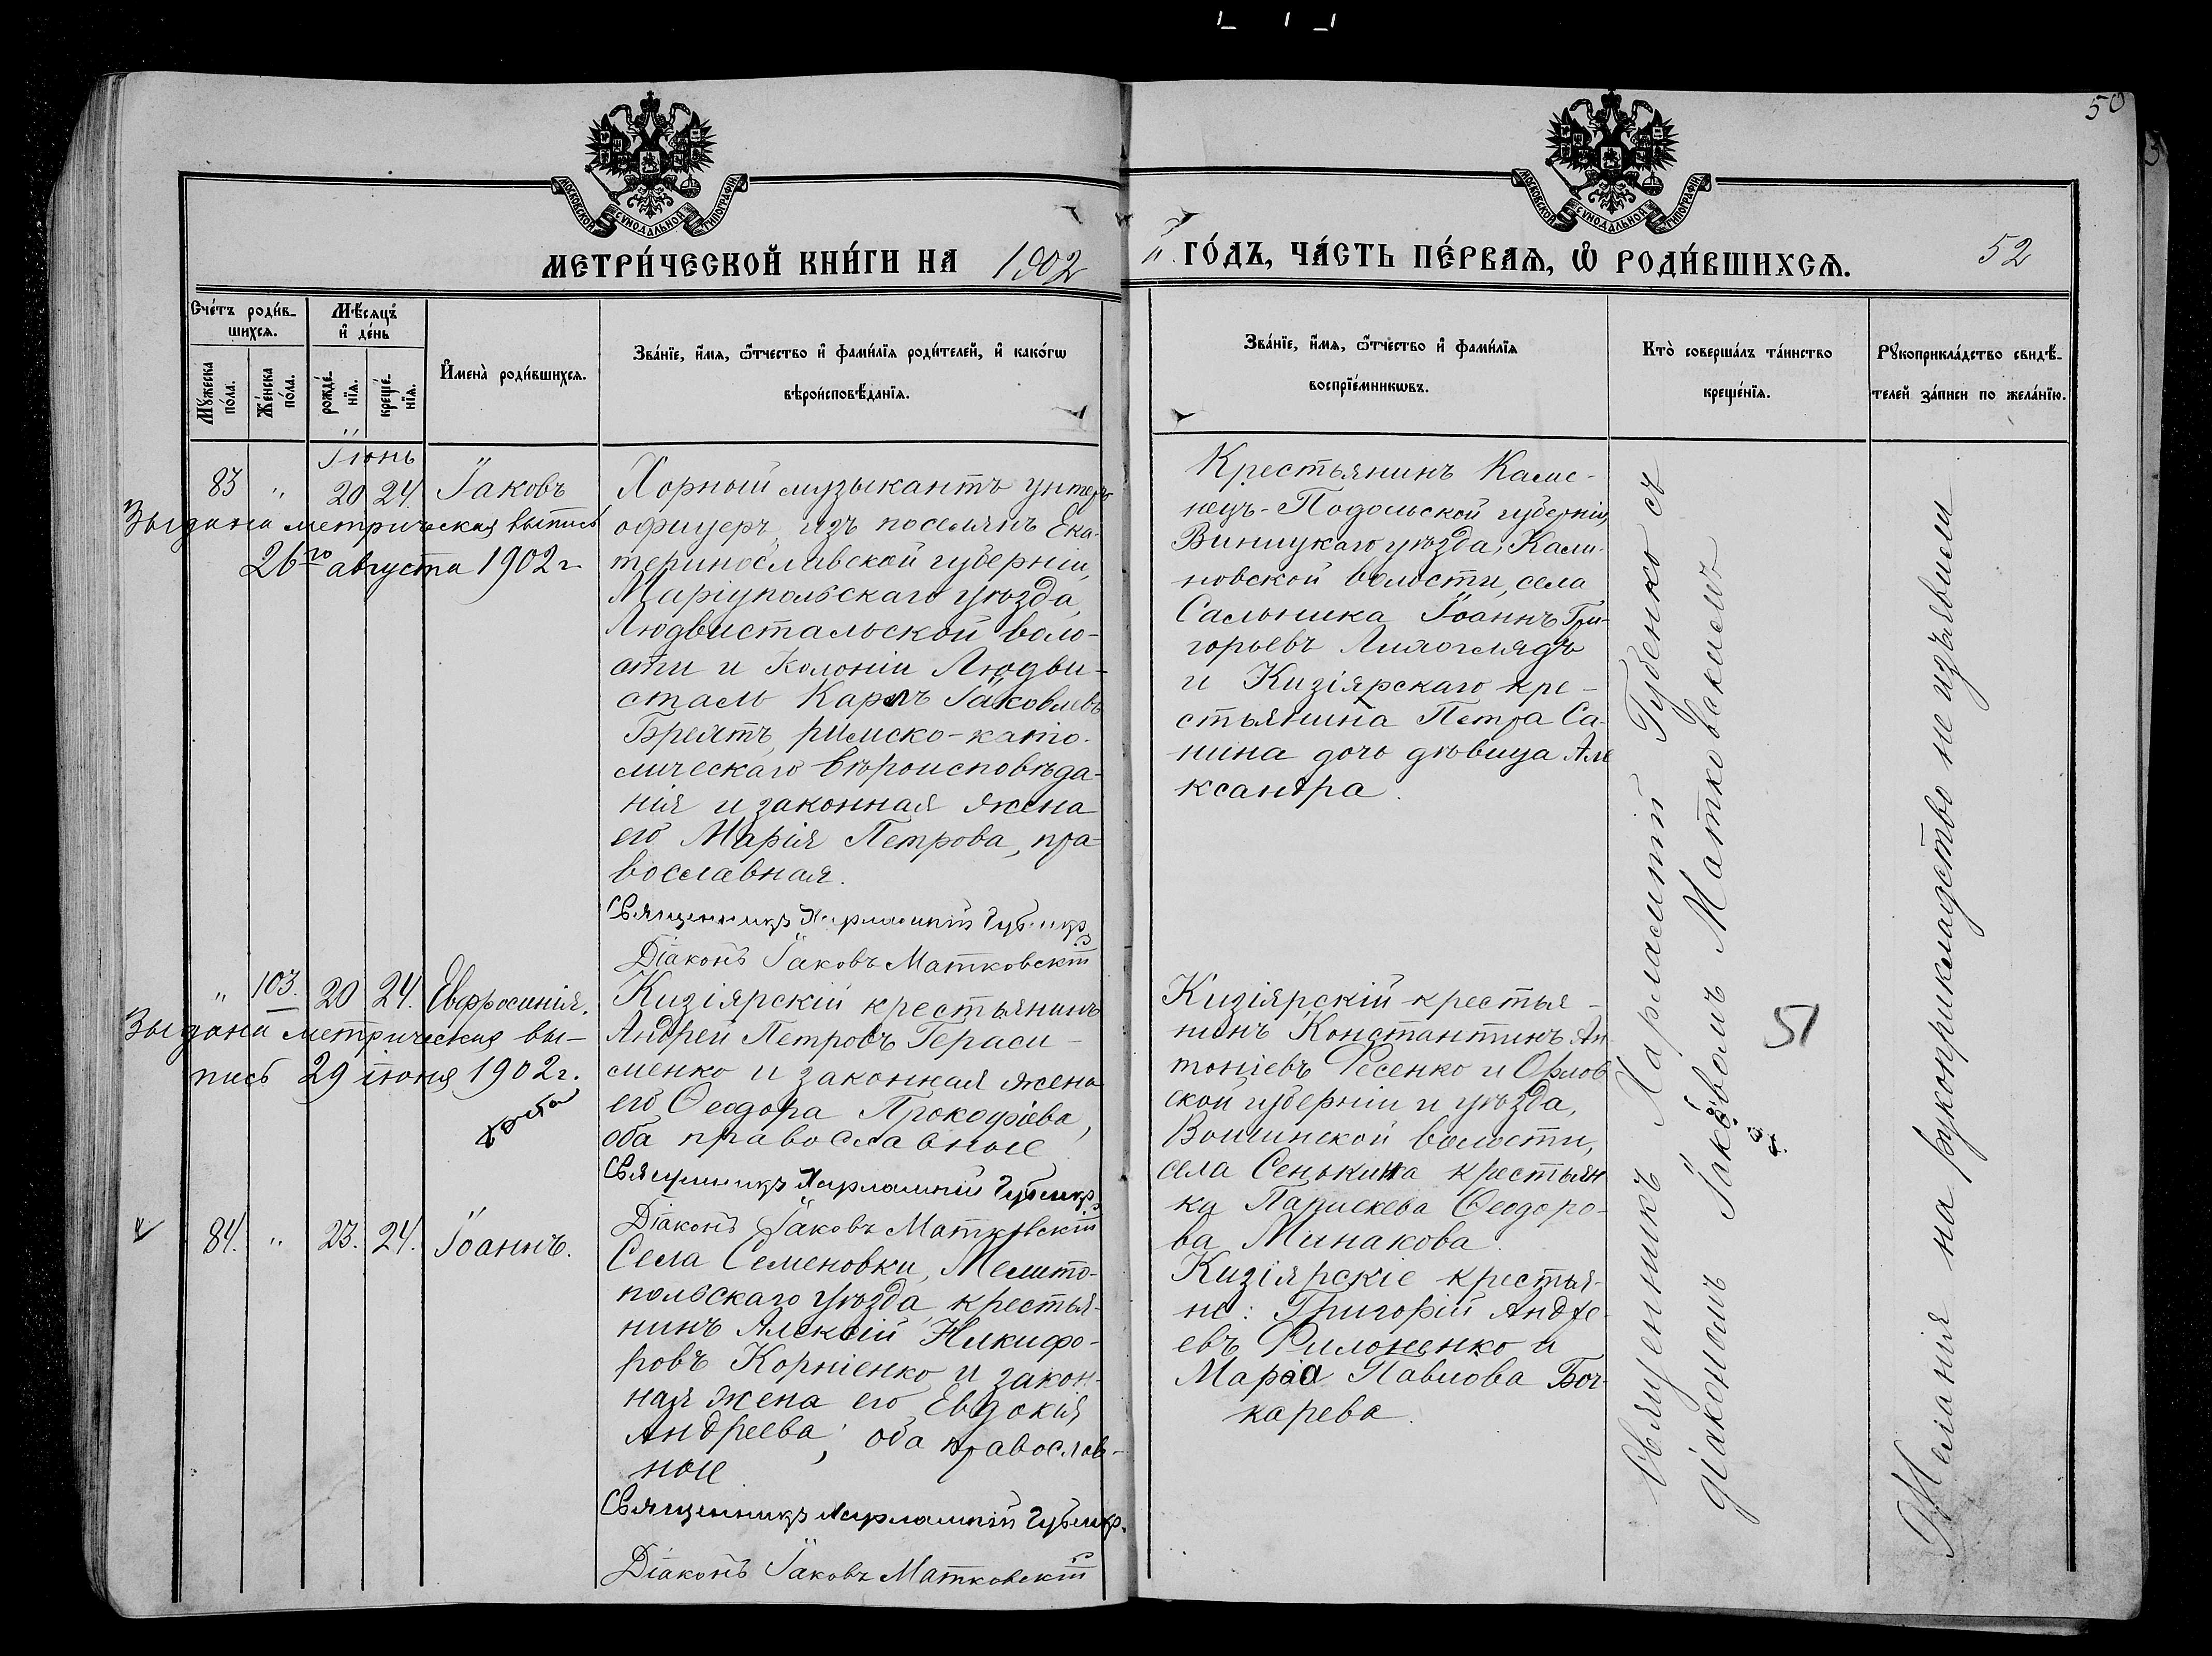 50
МОСКОВСКОЙ СѴНОДАЛЬНОЙ ТИПОГРАФІИ
МОСКОВСКОЙ СѴНОДАЛЬНОЙ ТИПОГРАФІИ
МЕТРИ́ЧЕСКОЙ КНИ́ГИ НА 1902
й ГО́ДЪ, ЧА́СТЬ ПЕ́РВАѦ, Ѡ РОДИ́ВШИХСѦ.
52
Сче́тъ роди́в-
шихся.
Мꙋжеска по́ла.
Же́нска по́ла.
Мѣ́сяцъ
и҆ де́нь
рожде́-
нїя.
креще́-
нїя.
И҆мена̀ роди́вшихся.
Зва́нїе, и҆́мя, ѻ҆́тчество и҆ фами́лїя роди́телей, и҆ како́гѡ
вѣроисповѣ́данїя.
Зва́нїе, и҆́мя, ѻ҆́тчество и҆ фами́лїя
воспрїе́мникѡвъ.
Кто̀ соверша́лъ та́инство
креще́нїя.
Рꙋкоприкла́дство свидѣ́-
телей за́писи по жела́нїю.
Іюнь
83 " 20 24. Іаковъ
Выдана метрическая выпись
26го августа 1902 г.
Хорный музыкантъ унтеръ
офицеръ, изъ поселянъ Ека-
теринославской губерніи,
Маріупольскаго уѣзда,
Людвистальской воло-
сти и колоніи Людви-
сталь Карлъ Іаковлевъ
Бреятъ, римско-като-
лическаго вѣроисповѣда-
нія и законная жена
его Марія Петрова, пра-
вославная.
Священникъ Харлампій Губенко
Діаконъ Іаковъ Матковскій
Крестьянинъ Каме-
нецъ-Подольской губерніи,
Виницкаго уѣзда, Кали-
новской волости, села
Сальника Іоаннъ Гри-
горьевъ Лихоглядъ
и Кизіярскаго кре-
стьянина Петра Са-
нина дочь дѣвица Але
ксандра.
" 103. 20 24. Евфросинія.
Выдана метрическая вы-
пись 29 іюня 1902 г.
Кизіярскій крестьянинъ
Андрей Петровъ Гераси-
менко и законная жена
его Ѳеодора Прокофіева,
оба православные
Священникъ Харлампій Губенко
Діаконъ Іаковъ Матковскій
Кизіярскій крестья-
нинъ Константинъ Ан-
тоніевъ Фесенко и Орлов
ской губерніи и уѣзда,
волости,
села Сенькина крестьян
ка Параскева Ѳеодоро-
ва Минакова.
84. " 23. 24. Іоаннъ.
Села Семеновки, Мелито-
польскаго уѣзда крестья-
нинъ Алексій Никифо-
ровъ Корніенко и закон-
ная жена его Евдокія
Андреева, оба православ-
ные
Священникъ Харлампій Губенко.
Діаконъ Іаковъ Матковскій
Кизіярскіе крестья-
не: Григорій Андре-
евъ Филоненко и
Марія Павлова Боч-
карева.
Священникъ Харлампій Губенко съ
діакономъ Іаковомъ Матковскимъ
51
Желанія на рукоприкладство не изъявили